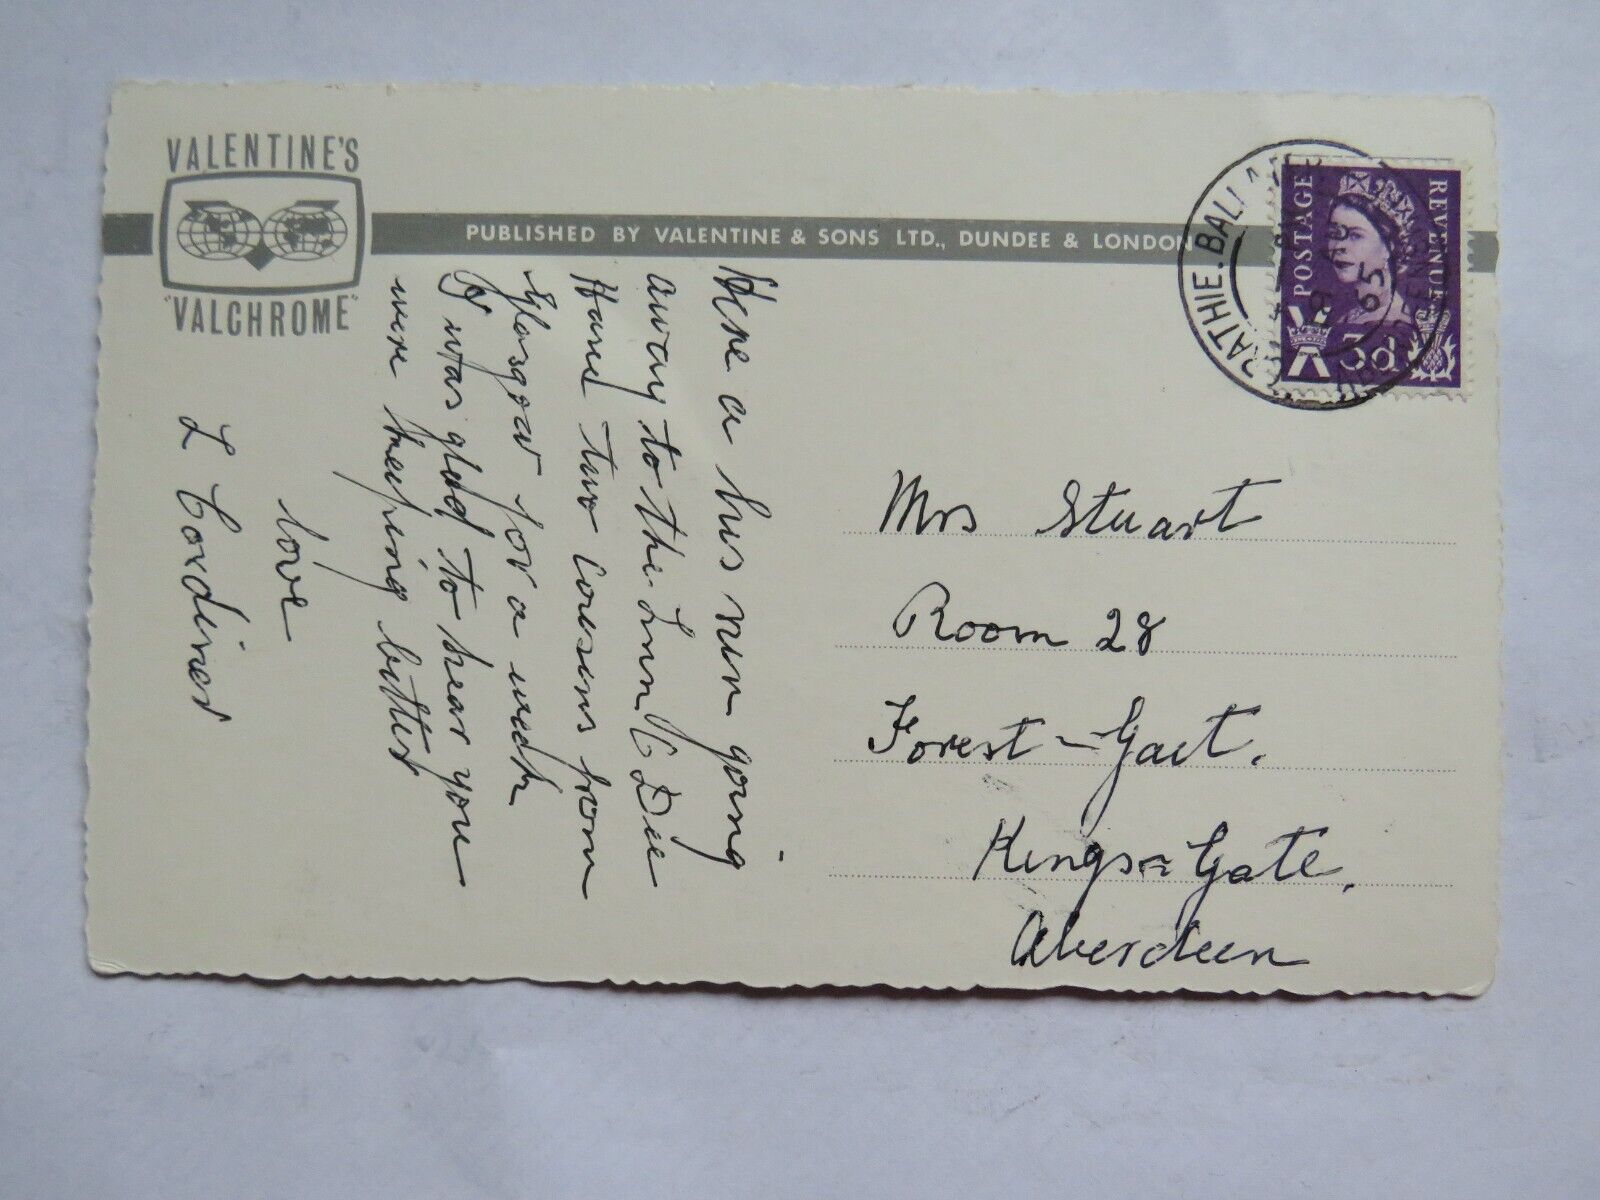 VALENTINE'S
"VALCHROME"
PUBLISHED BY VALENTINE & SONS LTD., DUNDEE & LONDON
Here a bus run going
away to the Linn O Dee
Have two cousins from
Glasgow for a week
I was glad to hear you
were keeping better
love
L Cordiner
POSTAGE
REVENUE
3d
RATHIE. BALLATER
65
Mrs Stuart
Room 28
Forest-Gait.
Kings-Gate,
Aberdeen